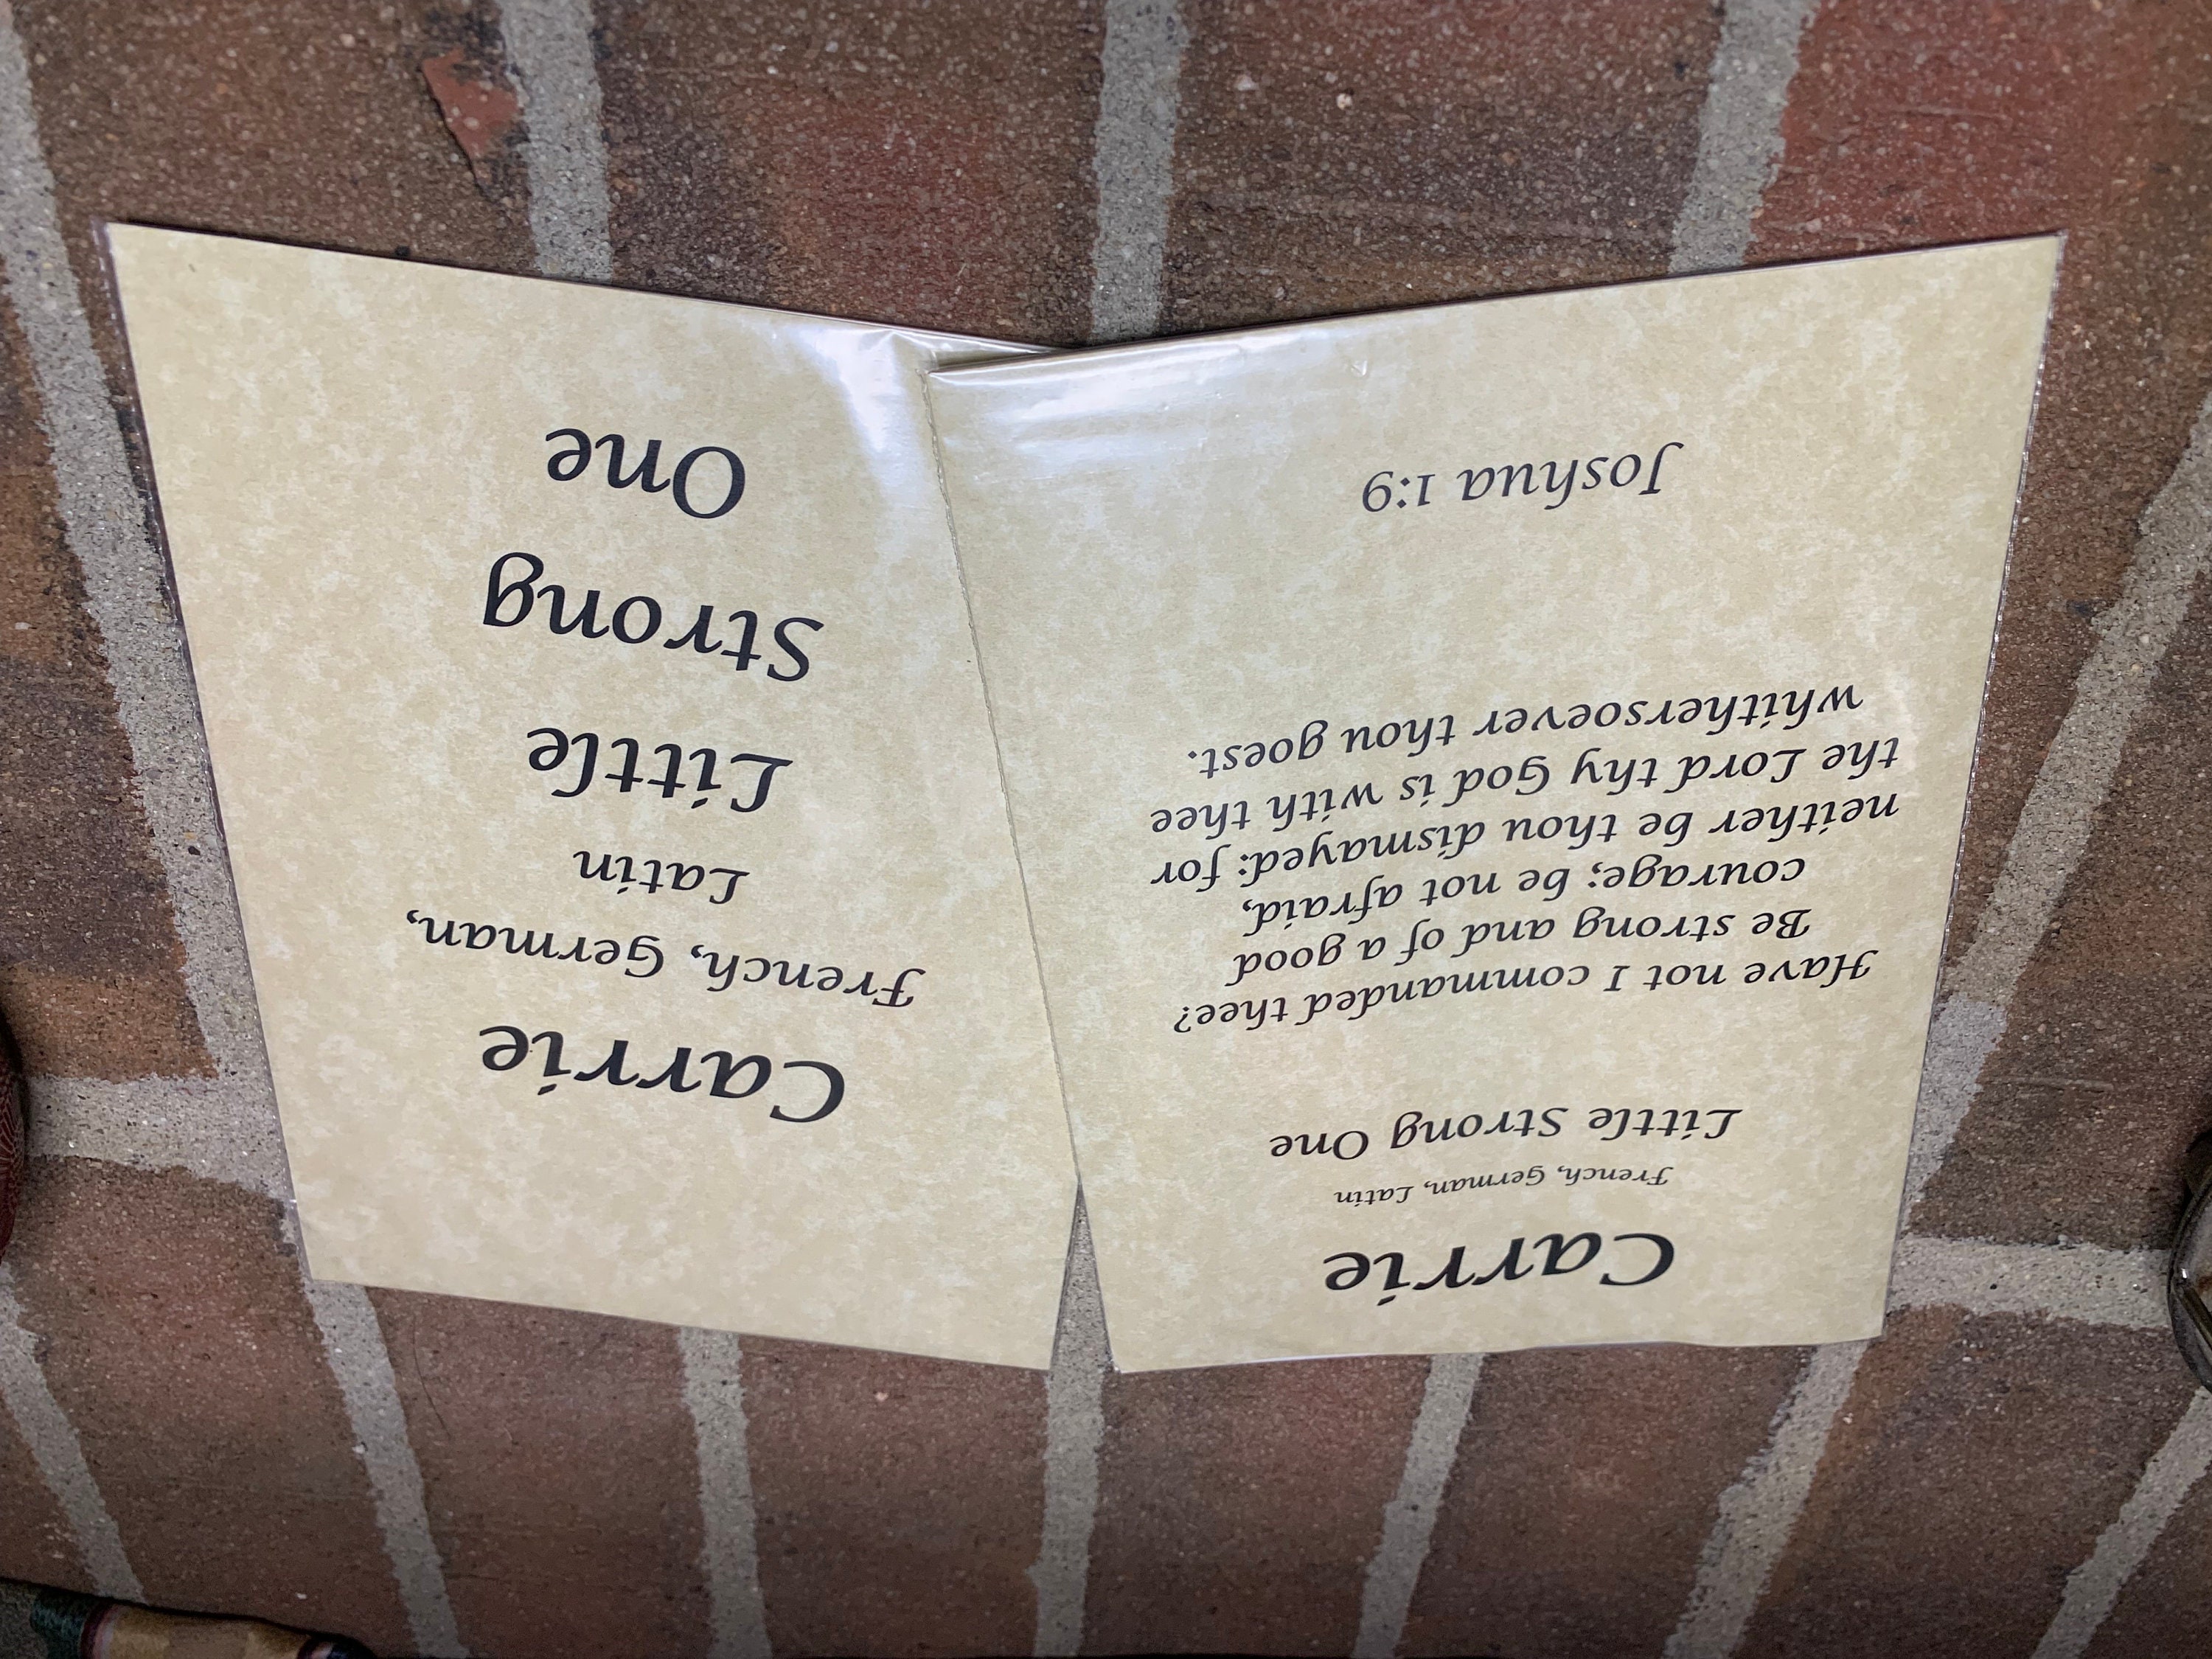 Carrie
French, German, Latin
Little Strong One
Have not I commanded thee?
Be strong and of a good
courage; be not afraid,
neither be thou dismayed: for
the Lord thy God is with thee
whithersoever thou goest.
Joshua 1:9
Carrie
French, German,
Latin
Little
Strong
One